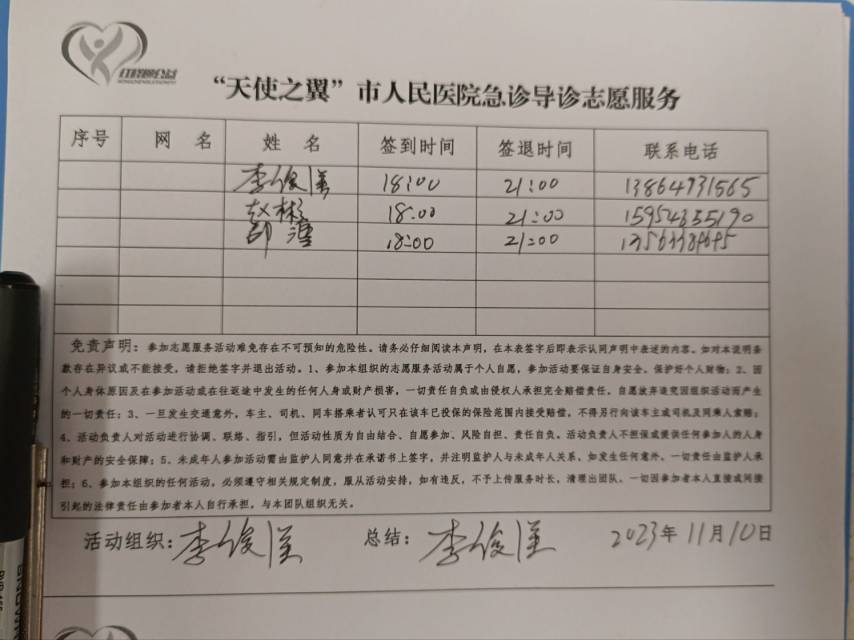 “天使之翼”市人民医院急诊导诊志愿服务
序号 网 名 姓 名 签到时间 签退时间 联系电话
李俊 18:00 21:00 13864931565
赵彬 18:00 21:00 15954355190
18:00 21:00
免责声明：参加志愿服务活动难免存在不可预知的危险性。请务必仔细阅读本声明，在本表签字后即表示认同声明中表述的内容。如对本说明条
款存在异议或不能接受，请拒绝签字并退出活动。1、参加本组织的志愿服务活动属于个人自愿，参加活动要保证自身安全，保护好个人财物；2、因
个人身体原因及在参加活动或在往返途中发生的任何人身或财产损害，一切责任自负或由侵权人承担完全赔偿责任，自愿放弃追究因组织活动而产生
的一切责任；3、一旦发生交通意外，车主、司机、同车搭乘者认可只在该车已投保的保险范围内接受赔偿，不得另行向该车主或司机及同乘人索赔；
4、活动负责人对活动进行协调、联络、指引，但活动性质为自由结合、自愿参加、风险自担、责任自负。活动负责人不担保或提供任何参加人的人身
和财产的安全保障；5、未成年人参加活动需由监护人同意并在承诺书上签字，并注明监护人与未成年人关系，如发生任何意外、一切责任由监护人承
担；6、参加本组织的任何活动，必须遵守相关规定制度，服从活动安排，如有违反，不予上传服务时长，清理出团队、一切因参加者本人直接或间接
引起的法律责任由参加者本人自行承担，与本团队组织无关。
活动组织：李俊 总结：李俊 2023年11月10日